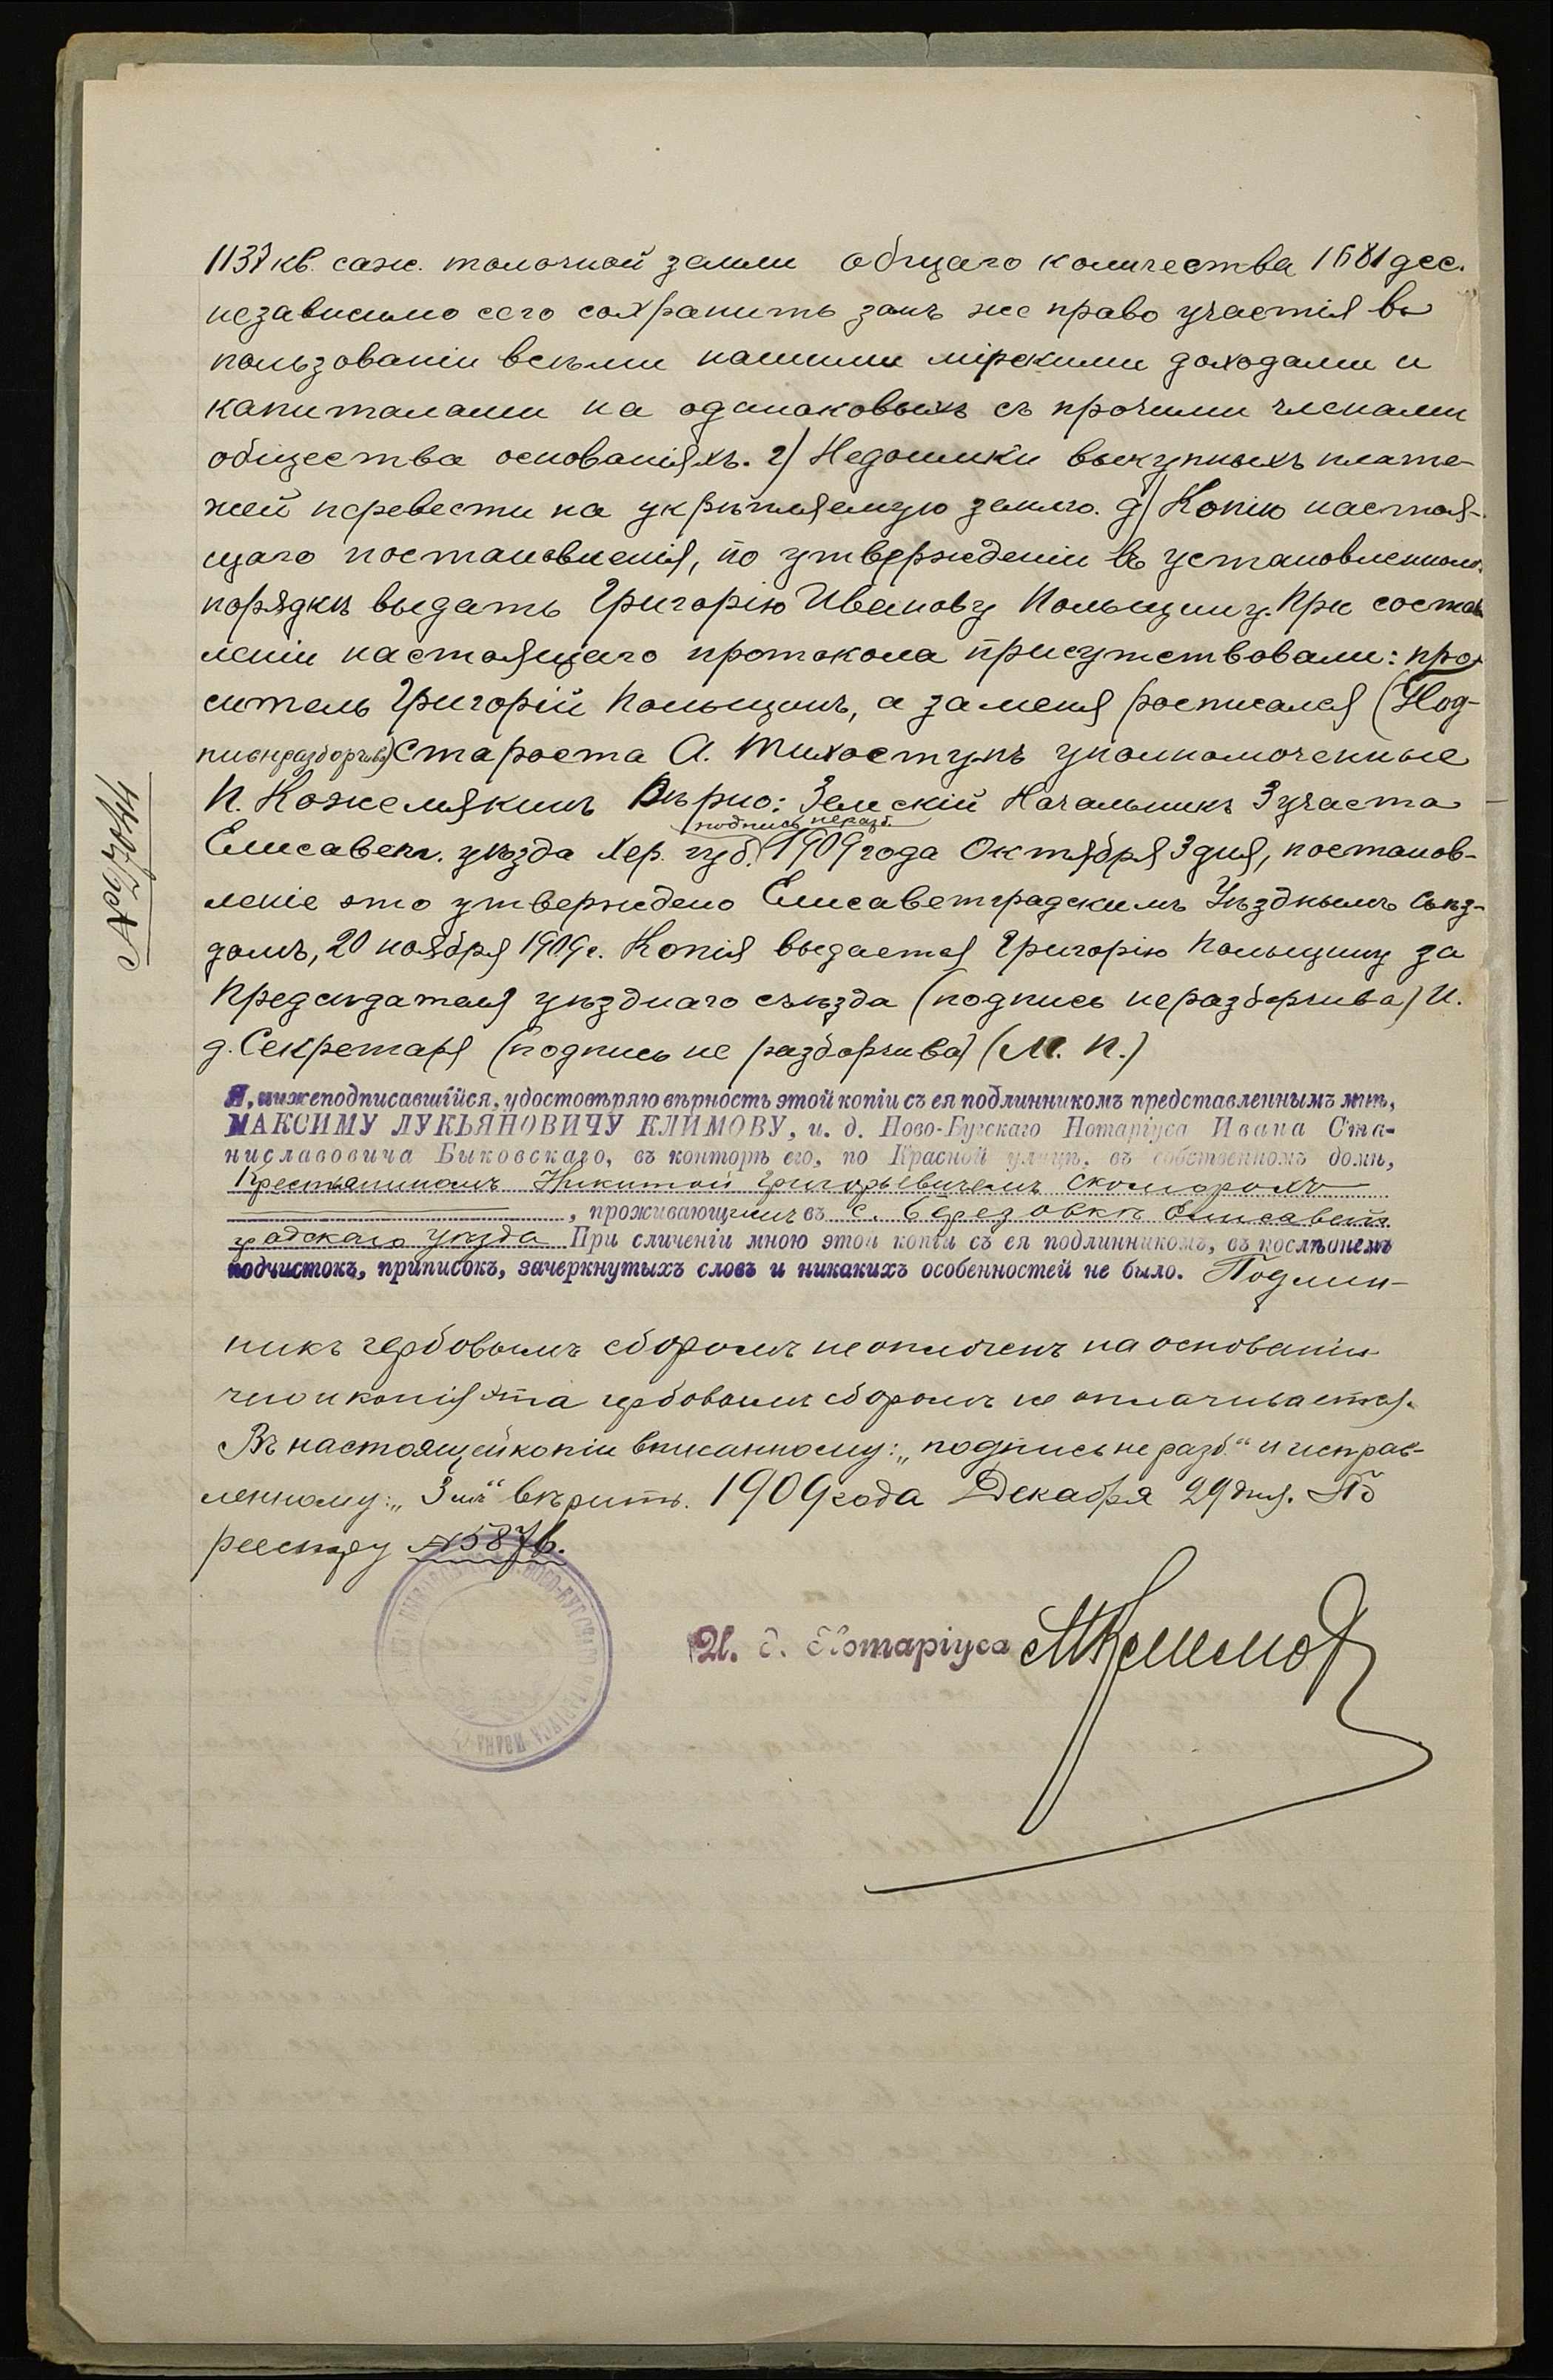 1137 кв. саж. толочной земли общаго количества 1681 дес.
независимо сего сохранить за нъ же право участія въ
пользованіи всѣми нашими мірскими доходами и
капиталами на одинаковыхъ съ прочими членами
общества основаніяхъ. г) Недоимки выкупныхъ плате-
жей перевести на укрѣпляемую землю. д) Копію настоя-
щаго постановленія, по утвержденіи въ установленном
порядкѣ выдать Григорію Иванову Польщину. При состав
леніи настоящаго протокола присутствовали: про
ситель Григорій Польщинъ, а за меня росписался (Под-
пись неразборчива) Староста А. Тихоступъ уполномоченные
П. Кожемякинъ Вѣрно: Земскій Начальникъ 3 участа
подпись неразб.
Елисавет. уѣзда Хер. губ. 1909 года Октября 3 дня, постанов-
леніе это утверждено Елисаветградскимъ Уѣзднымъ Съѣз-
домъ, 20 ноября 1909 г. Копія выдается Григорію Польщину за
Предсѣдателя уѣзднаго съѣзда (подпись неразборчива) И.
д. Секретаря (подпись не разборчива) (М. П.)
Я, нижеподписавшійся, удостовѣряю вѣрность этой копіи съ ея подлинникомъ представленнымъ мнѣ,
МАКСИМУ ЛУКЬЯНОВИЧУ КЛИМОВУ, и. д. Ново-Бугскаго Нотаріуса Ивана Ста-
ниславовича Быковскаго, въ конторѣ его, по Красной улицѣ, въ собственномъ домѣ,
Крестьяниномъ Никитой Григорьевичемъ Скоморохъ
, проживающимъ въ с. Березовкѣ Елисавет
градскаго уѣзда При сличеніи мною этой копіи съ ея подлинникомъ, въ послѣднемъ
подчистокъ, приписокъ, зачеркнутыхъ словъ и никакихъ особенностей не было. Подлин-
никъ гербовымъ сборомъ не оплоченъ на основаніи
чего и копія эта гербовымъ сборомъ не оплачивается.
Въ настоящей копіи вписанному: „подпись не разб." и исправ-
ленному: „ " вѣрить. 1909 года Декабря 29 дня. По
реестру №5876.
И. д. Нотаріуса МКлимов
НОВО-БУГСКАГО НОТАРІУСА ИВАНА